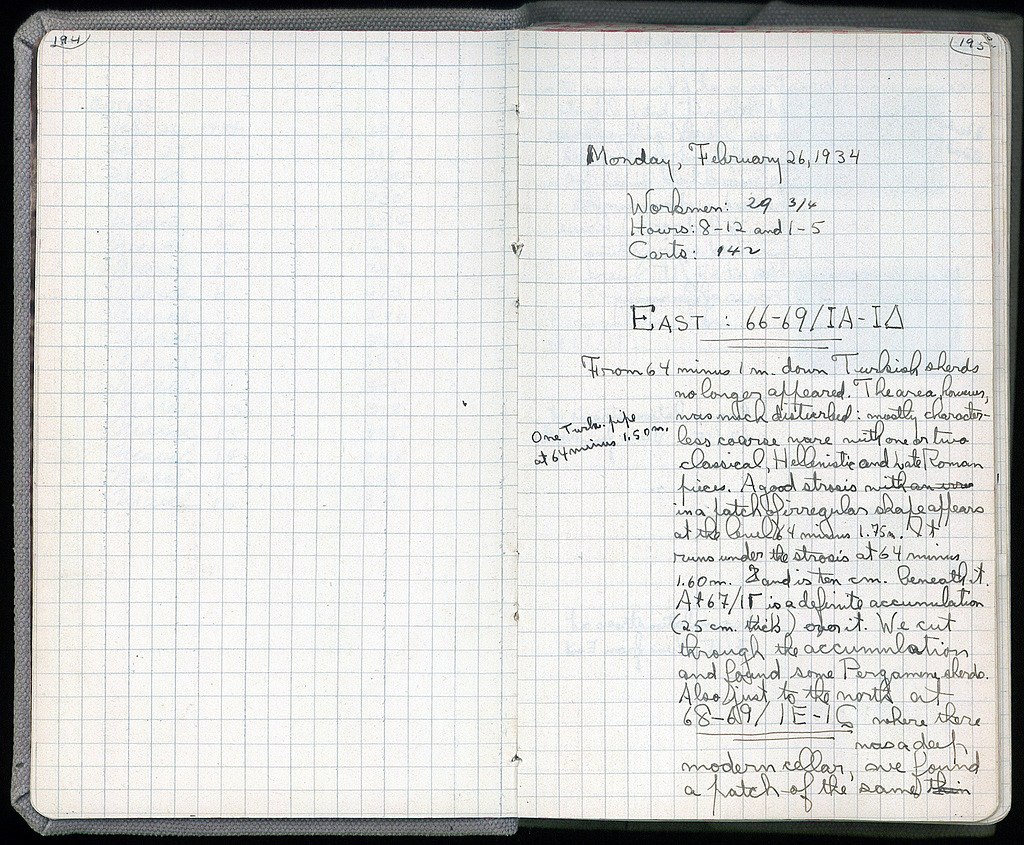 194
195
Monday, February 26, 1934
Workmen: 29 3/4
Hours: 8-12 and 1-5
Carts: 142
EAST : 66-69/ΙΑ-ΙΔ
From 64 minus 1 m. down Turkish sherds
no longer appeared. The area, however,
was much disturbed: mostly character-
less coarse ware with one or two
One Turk. pipe
at 64 minus 1.50m.
classical, Hellenistic and Late Roman
pieces. A good strosis with an
in a patch of irregular shape appears
at the level 64 minus 1.75m. It
runs under the strosis at 64 minus
1.60m. and is ten cm. beneath it.
At 67/ΙΓ is a definite accumulation
(25 cm. thick) over it. We cut
through the accumulation
and found some Pergamene sherds.
Also just to the north at
68-69/ΙΕ-ΙϚ where there
was a deep
modern cellar, we found
a patch of the same thin